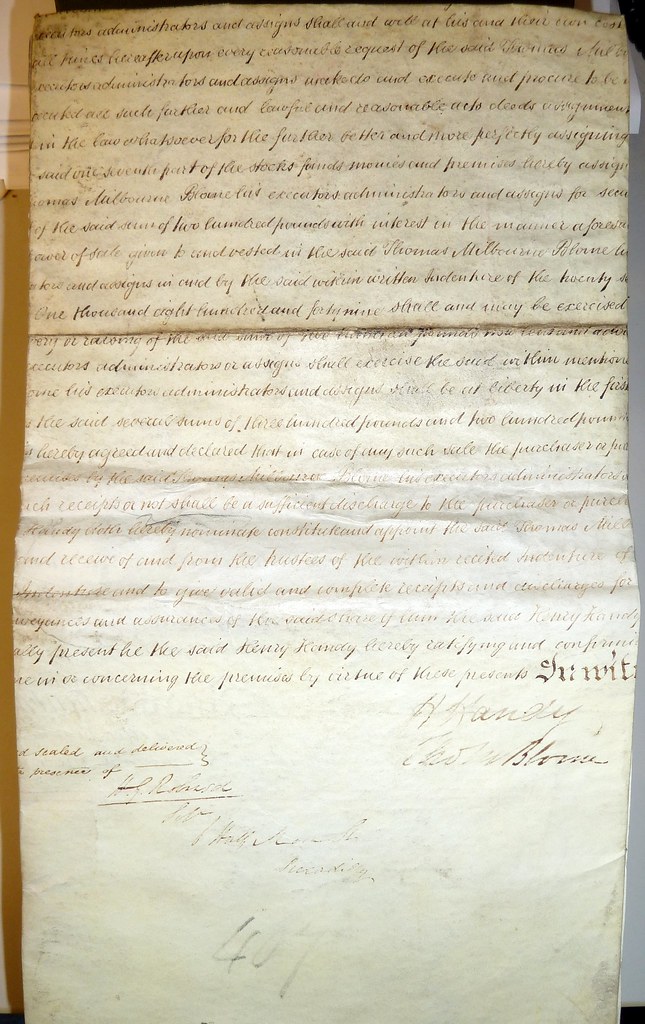 executors administrators and assigns shall and will at his and their own cost
all times hereafter upon every reasonable request of the said Thomas Milb
executors administrators and assigns make do and execute and procure to be
executed all such further and lawful and reasonable acts deeds assignment
in the law whatsoever for the further better and more perfectly assigning
said one seventh part of the stocks funds monies and premises hereby assign
homas Milbourne Blome his executors administrators and assigns for secu
of the said sum of two hundred pounds with interest in the manner aforesai
ower of sale given to and vested in the said Thomas Milbourne Blome
ators and assigns in and by the said within written Indenture of the twenty
One thousand eight hundred and forty nine shall and may be exercised
very or raising of the said sum of two hundred pounds now
executors administrators or assigns shall exercise the said within mentione
ome his executors administrators and assigns shall be at liberty in the first
the said several sums of three hundred pounds and two hundred poun
is hereby agreed and declared that in case of any such sale the purchaser or pur
by the said Thomas Milbourne Blome his executors administrators
such receipts or not shall be a sufficient discharge to the purchaser or purch
Handy doth hereby nominate constitute and appoint the said Thomas Milb
and receive of and from the trustees of the within recited Indenture of
Indenture and to give valid and complete receipts and discharges for
veyances and assurances of the said share of him the said Henry Handy
ally present he the said Henry Handy hereby ratifying and confirmi
ne in or concerning the premises by virtue of these presents In wit
H Handy
Thos M Blome
d sealed and delivered
presence of
Half Moon St
Piccadilly
407